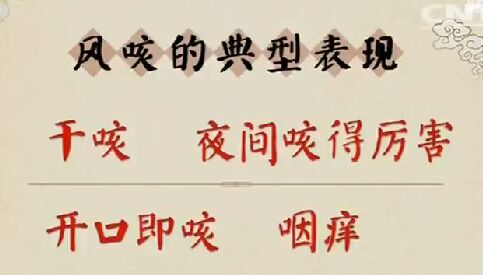 风咳的典型表现
干咳 夜间咳得厉害
开口即咳 咽痒